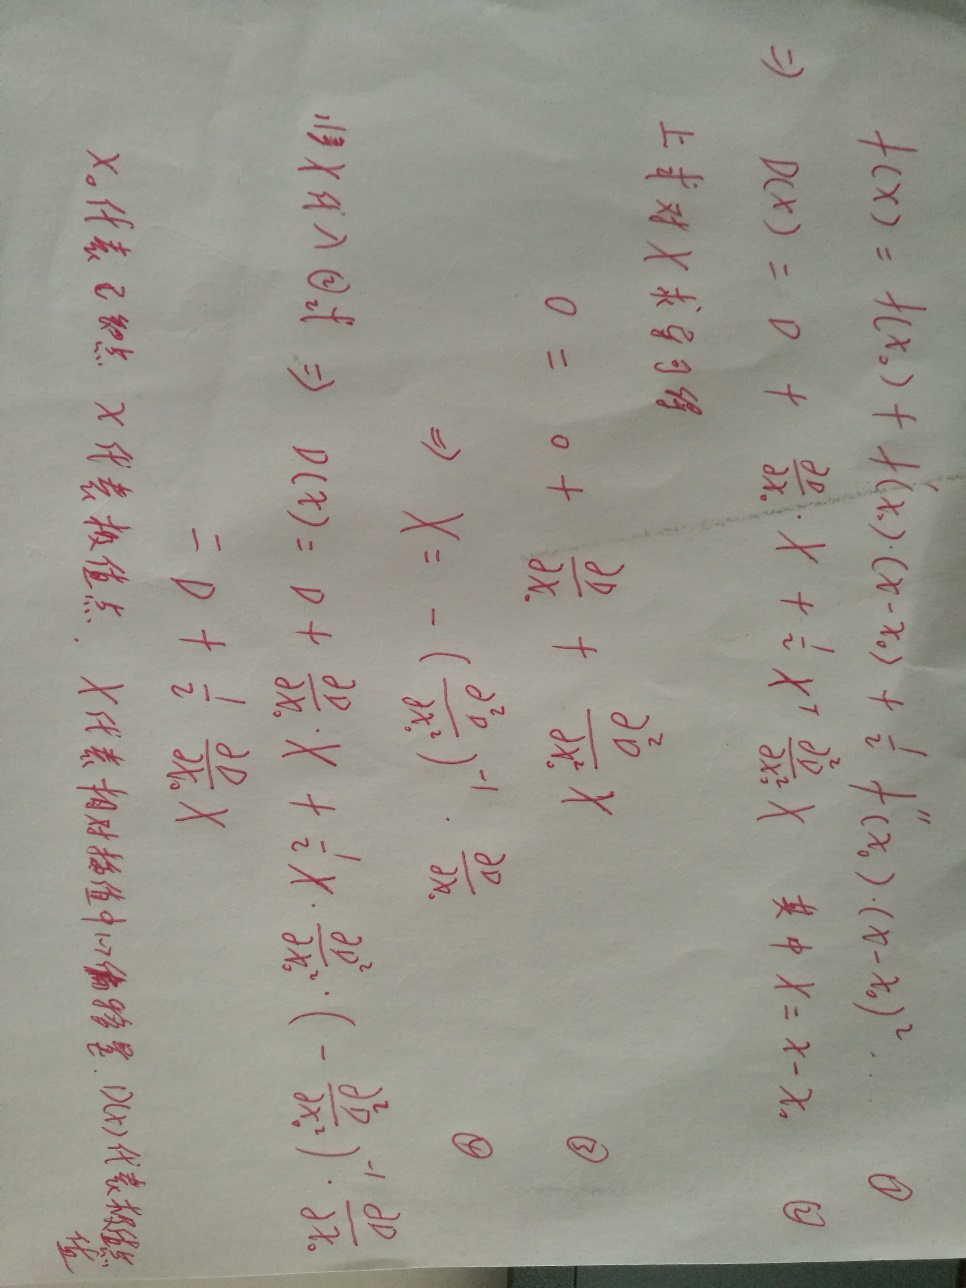 f(x) = f(x₀) + f'(x₀)·(x-x₀) + 1/2 f''(x₀)·(x-x₀)². ①
=) D(x) = D + ∂D/∂x₀ · X + 1/2 X ∂²D/∂x₀² X 其中 X = x-x₀ ②
上式对X求导得
0 = 0 + ∂D/∂x₀ + ∂²D/∂x₀² X ③
=> X = -(∂²D/∂x₀²)⁻¹ · ∂D/∂x₀ ④
将X代入②式 => D(x) = D + ∂D/∂x₀ · X + 1/2 X · ∂²D/∂x₀² · (-∂²D/∂x₀²)⁻¹ · ∂D/∂x₀
= D + 1/2 ∂D/∂x₀ X
x₀代表已知点 x代表极值点. X代表相对插值中心偏移量. D(x)代表极值点值